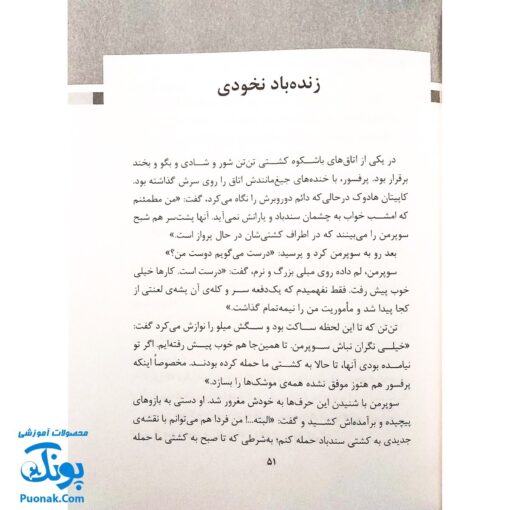 زنده‌باد نخودی
در یکی از اتاق‌های باشکوه کشتی تن‌تن شور و شادی و بگو و بخند
برقرار بود. پرفسور، با خنده‌های جیغ‌مانندش اتاق را روی سرش گذاشته بود.
کاپیتان هادوک درحالی‌که دائم دوروبرش را نگاه می‌کرد، گفت: «من مطمئنم
که امشب خواب به چشمان سندباد و یارانش نمی‌آید. آنها پشت‌سر هم شبح
سوپرمن را می‌بینند که در اطراف کشتی‌شان در حال پرواز است.»
بعد رو به سوپرمن کرد و پرسید: «درست می‌گویم دوست من؟»
سوپرمن، لم داده روی مبلی بزرگ و نرم، گفت: «درست است. کارها خیلی
خوب پیش رفت. فقط نفهمیدم که یک‌دفعه سر و کله‌ی آن پشه‌ی لعنتی از
کجا پیدا شد و مأموریت من را نیمه‌تمام گذاشت.»
تن‌تن که تا این لحظه ساکت بود و سگش میلو را نوازش می‌کرد گفت:
«خیلی نگران نباش سوپرمن. تا همین‌جا هم خوب پیش رفته‌ایم. اگر تو
نیامده بودی آنها، تا حالا به کشتی ما حمله کرده بودند. مخصوصاً اینکه
پرفسور هم هنوز موفق نشده همه‌ی موشک‌ها را بسازد.»
سوپرمن با شنیدن این حرف‌ها به خودش مغرور شد. او دستی به بازوهای
پیچیده و برآمده‌اش کشید و گفت: «البته...! من فردا هم می‌توانم با نقشه‌ی
جدیدی به کشتی سندباد حمله کنم؛ به‌شرطی که تا صبح به کشتی ما حمله
۵۱
محصولات آموزشی
پونک
Puonak.Com